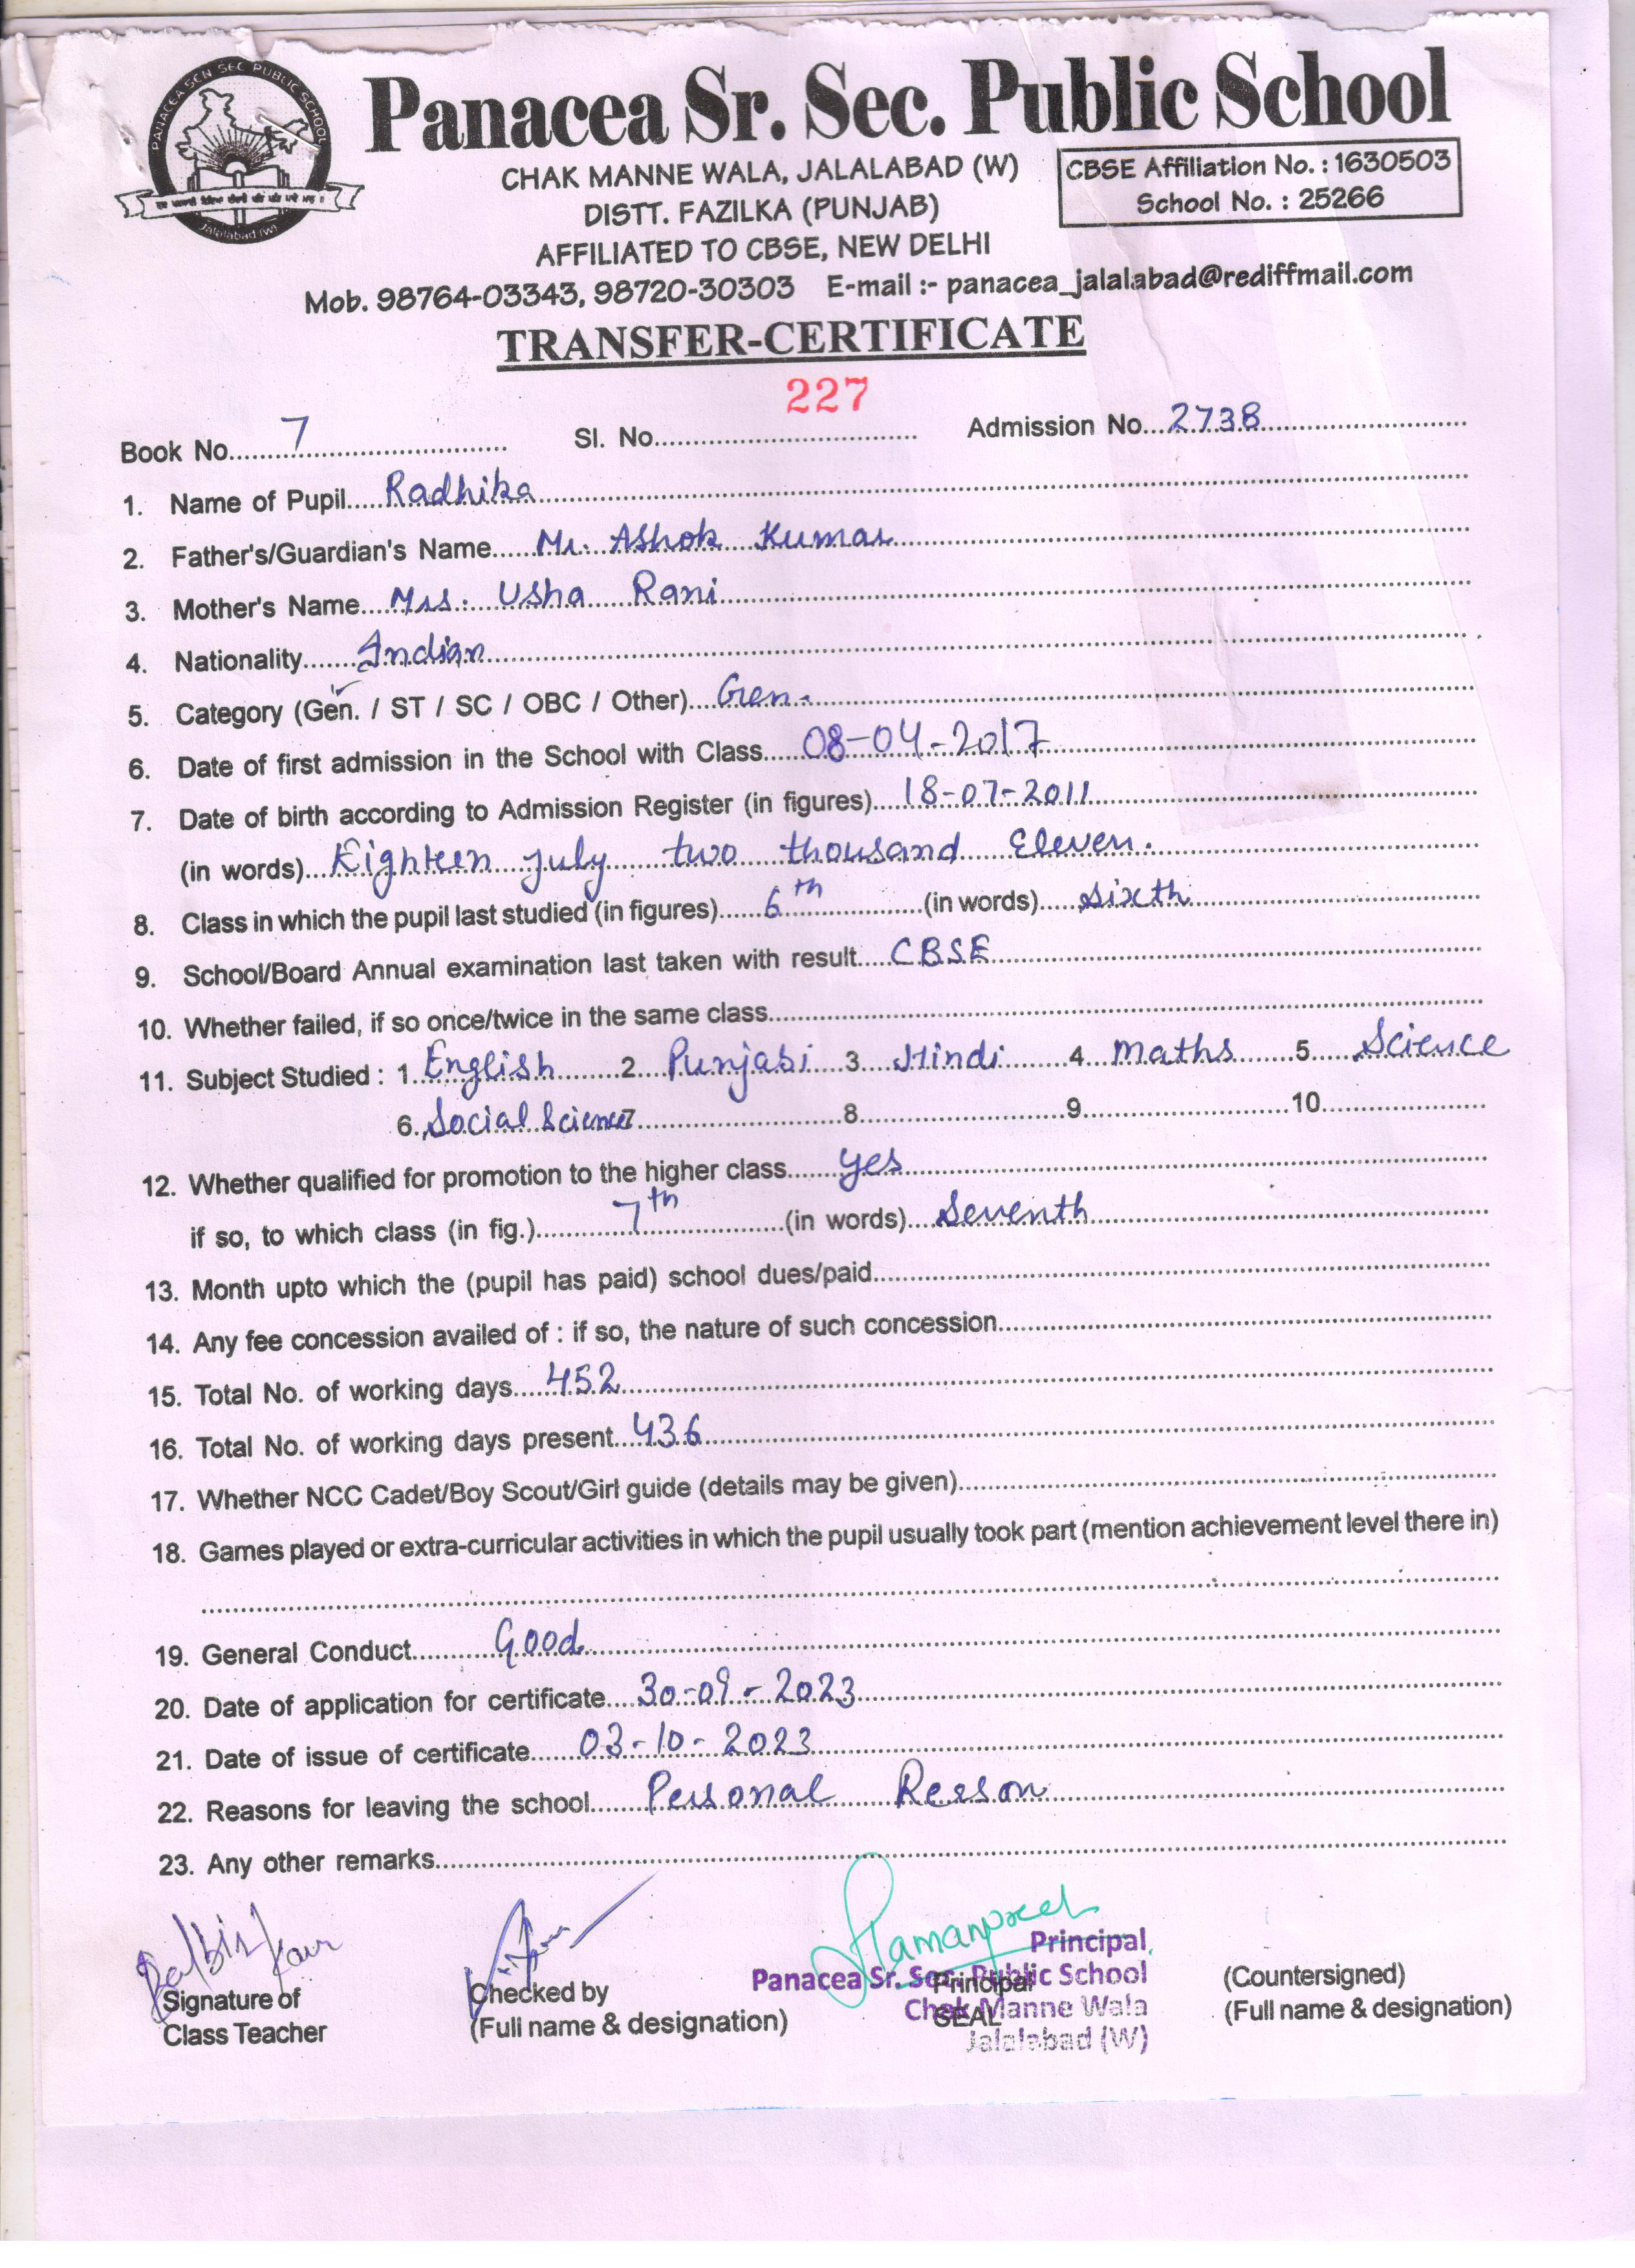 PANACEA SEN SEC PUBLIC SCHOOL
Jalalabad (W)
Panacea Sr. Sec. Public School
CHAK MANNE WALA, JALALABAD (W)
DISTT. FAZILKA (PUNJAB)
AFFILIATED TO CBSE, NEW DELHI
CBSE Affiliation No. : 1630503
School No. : 25266
Mob. 98764-03343, 98720-30303 E-mail :- panacea_jalalabad@rediffmail.com
TRANSFER-CERTIFICATE
227
Book No. 7 Sl. No. Admission No. 2738
1. Name of Pupil Radhika
2. Father's/Guardian's Name Mr. Ashok Kumar
3. Mother's Name Mrs. Usha Rani
4. Nationality Indian
5. Category (Gen. / ST / SC / OBC / Other) Gen.
6. Date of first admission in the School with Class 08-04-2017
7. Date of birth according to Admission Register (in figures) 18-07-2011
(in words) Eighteen july two thousand Eleven.
8. Class in which the pupil last studied (in figures) 6th (in words) Sixth
9. School/Board Annual examination last taken with result CBSE
10. Whether failed, if so once/twice in the same class
11. Subject Studied : 1. English 2. Punjabi 3. Hindi 4. Maths 5. Science
6. Social Science 7 8 9 10
12. Whether qualified for promotion to the higher class yes
if so, to which class (in fig.) 7th (in words) Seventh
13. Month upto which the (pupil has paid) school dues/paid
14. Any fee concession availed of : if so, the nature of such concession
15. Total No. of working days 452
16. Total No. of working days present 436
17. Whether NCC Cadet/Boy Scout/Girl guide (details may be given)
18. Games played or extra-curricular activities in which the pupil usually took part (mention achievement level there in)
19. General Conduct Good
20. Date of application for certificate 30-09-2023
21. Date of issue of certificate 03-10-2023
22. Reasons for leaving the school Personal Reeson
23. Any other remarks
Balbir Kaur
Signature of
Class Teacher
Checked by
(Full name & designation)
Ramanpreet
Principal
Panacea Sr. Sec. Public School
Chak Manne Wala
Jalalabad (W)
Principal
SEAL
(Countersigned)
(Full name & designation)